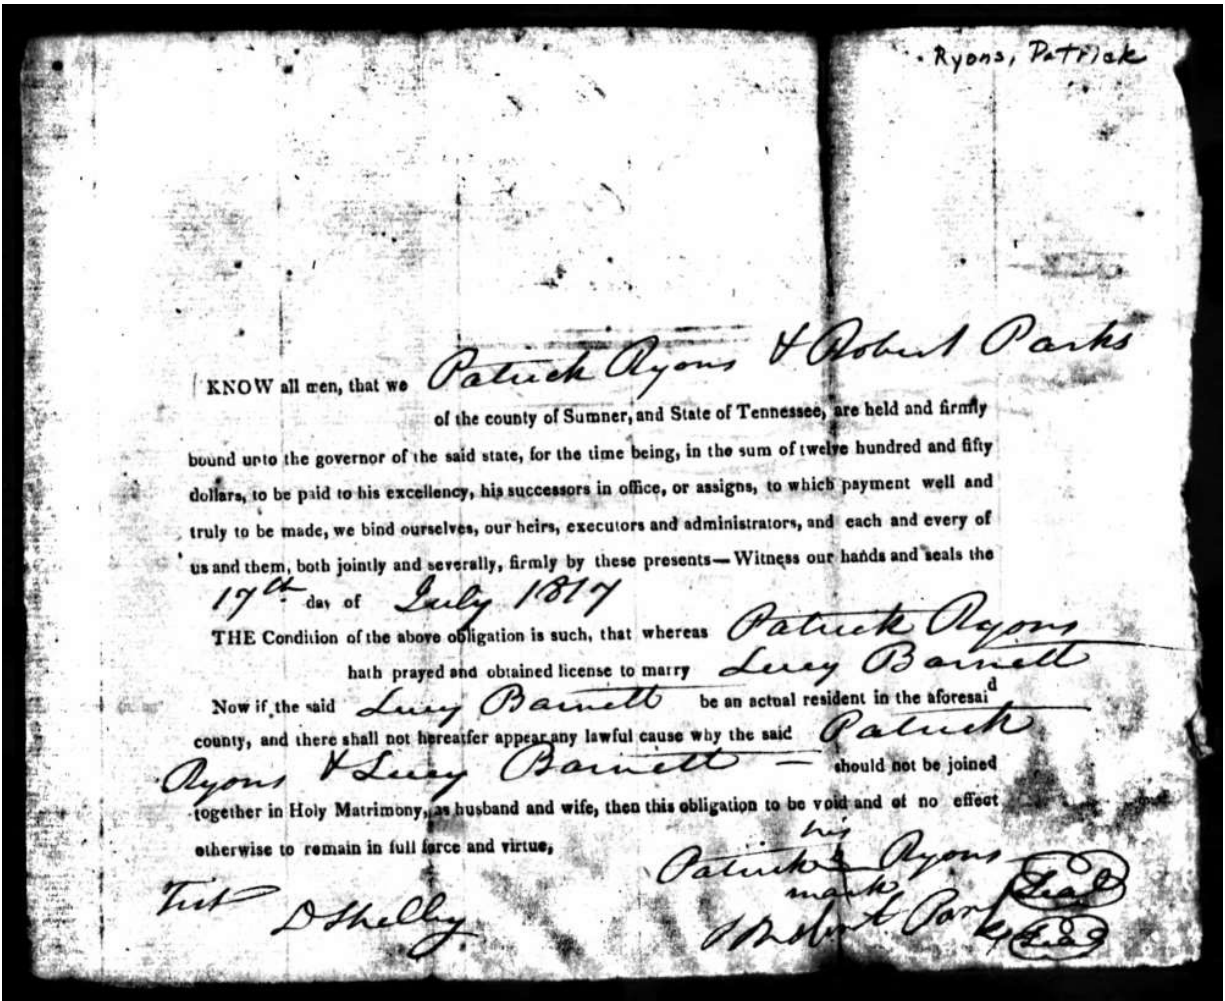 Ryons, Patrick
KNOW all men, that we Patrick Ryons & Robert Parks
of the county of Sumner, and State of Tennessee, are held and firmly
bound unto the governor of the said state, for the time being, in the sum of twelve hundred and fifty
dollars, to be paid to his excellency, his successors in office, or assigns, to which payment well and
truly to be made, we bind ourselves, our heirs, executors and administrators, and each and every of
us and them, both jointly and severally, firmly by these presents—Witness our hands and seals the
17th day of July 1817
THE Condition of the above obligation is such, that whereas Patrick Ryons
hath prayed and obtained license to marry Lucy Barnett
Now if the said Lucy Barnett be an actual resident in the aforesaid
county, and there shall not hereafter appear any lawful cause why the said Patrick
Ryons & Lucy Barnett — should not be joined
together in Holy Matrimony, as husband and wife, then this obligation to be void and of no effect
otherwise to remain in full force and virtue,
his
Patrick Ryons Seal
mark
Test
D Shelby
Robert Parks Seal